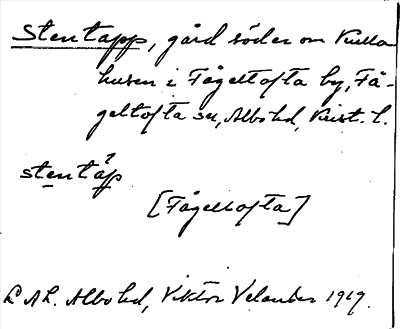 Stentapp, gård söder om Kulla-
husen i Fågeltofta by, Få-
geltofta sn, Albo hd, Krist. l.
stentåp
[Fågeltofta]
LAL. Albo hd, Viktor Velander 1919.